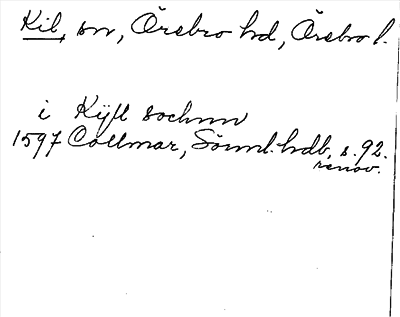 Kil, sn, Örebro hd, Örebro l.
i Kijll sochnn
1597 Collmar, Sörml. hdb, s. 92.
renov.